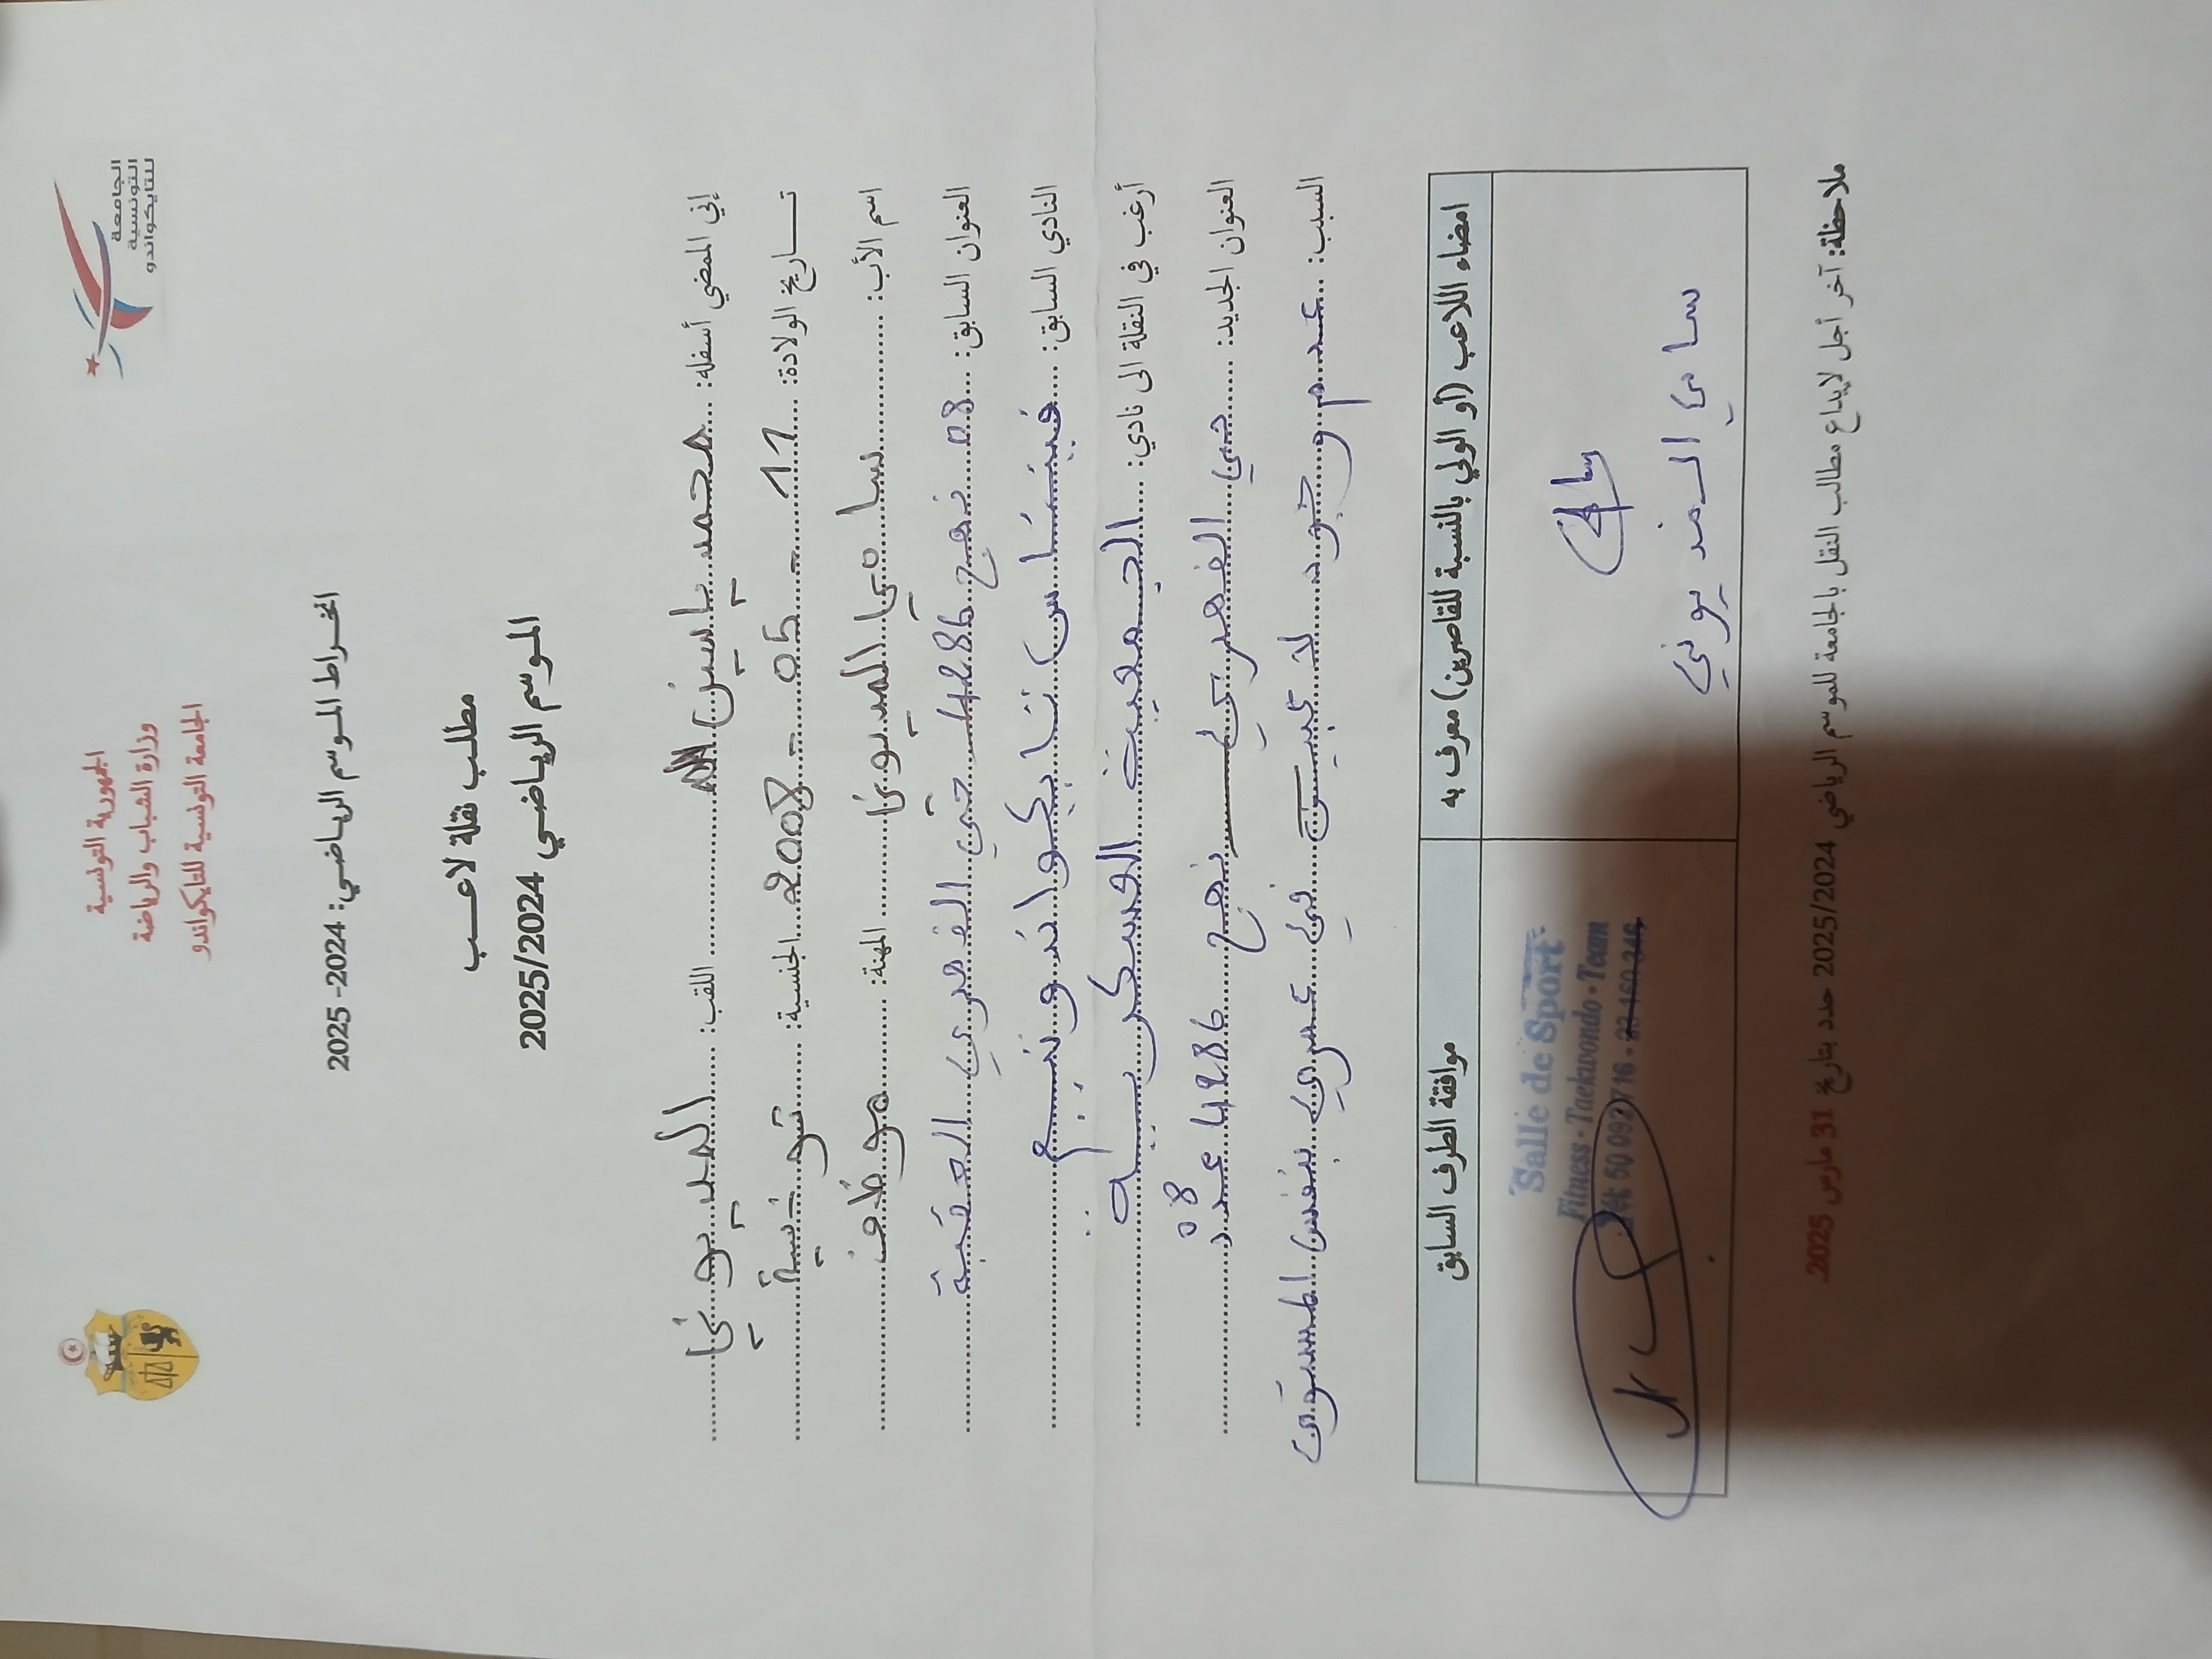 الجمهورية التونسية
وزارة الشباب والرياضة
الجامعة التونسية للتايكواندو
الجامعة
التونسية
للتايكواندو
انخراط الموسم الرياضي: 2024- 2025
مطلب نقلة لاعب
الموسم الرياضي 2025/2024
إني الممضي أسفله: محمد ياسين اللقب: المديوني
تاريخ الولادة: 11 - 05 - 2008 الجنسية: تونسية
اسم الأب: سامي المديوني المهنة: موظف
العنوان السابق: 08 نهج 4286 حي الفهري العقبة
النادي السابق: فيتناس تايكواندو تيم
أرغب في النقلة الى نادي: الجمعية العسكرية
العنوان الجديد: حي الفهري نهج 4286 عدد 08
السبب: عدم وجود لاعبين في عمري بنفس المستوى
امضاء اللاعب (أو الولي بالنسبة للقاصرين) معرف به
موافقة الطرف السابق
سامي المديوني
Salle de Sport
Fitness - Taekwondo - Team
Tél: 50 092 716 -
ملاحظة: آخر أجل لايداع مطالب النقل بالجامعة للموسم الرياضي 2025/2024 حدد بتاريخ 31 مارس 2025.